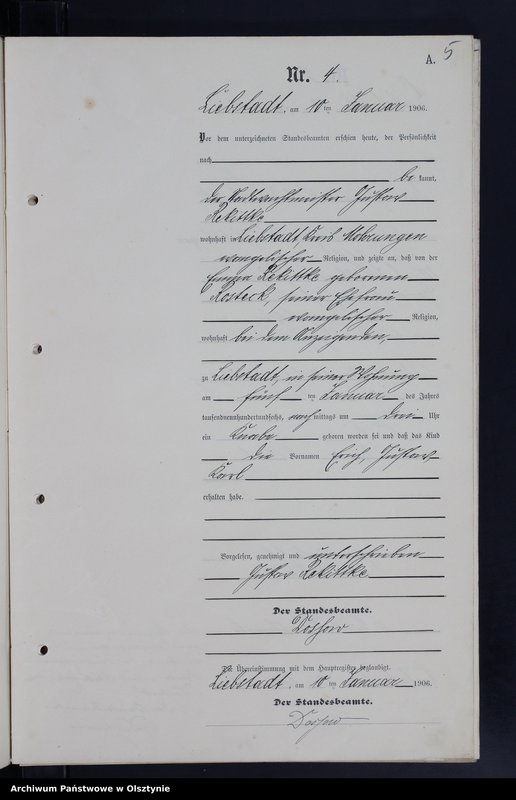 A. 5
Nr. 4.
Liebstadt, am 10 ten Januar 1906.
Vor dem unterzeichneten Standesbeamten erschien heute, der Persönlichkeit
nach
be kannt,
der Stadtwachtmeister Gustav
Rekittke
wohnhaft in Liebstadt, Kreis Mohrungen
evangelischer Religion, und zeigte an, daß von der
Emma Rekittke geborenen
Rosteck, seiner Ehefrau
evangelischer Religion,
wohnhaft bei dem Anzeigenden,
zu Liebstadt, in seiner Wohnung
am fünf ten Januar des Jahres
tausendneunhundertundsechs, nachmittags um drei Uhr
ein Knabe geboren worden sei und daß das Kind
die Vornamen Erich, Gustav
Karl
erhalten habe.
Vorgelesen, genehmigt und unterschrieben
Gustav Rekittke
Der Standesbeamte.
Die Übereinstimmung mit dem Hauptregister beglaubigt.
Liebstadt, am 10 ten Januar 1906.
Der Standesbeamte.
Archiwum Państwowe w Olsztynie